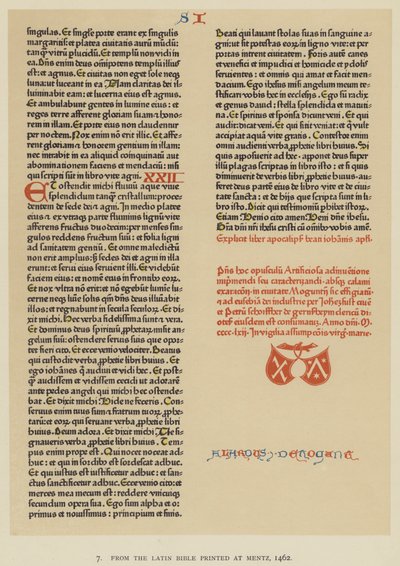 S I
singulas. Et singule porte erant ex singulis
margaritis: et platea civitatis aurũ mũdũ:
tanq̃ vitrũ plucidũ. Et templũ non vidi in
ea. Dñs enim deus om̃ipotens templũ illius
est: et agnus. Et civitas non eget sole neq;
luna: ut luceant in ea. Nam claritas dei il-
luminabit eam: et lucerna eius est agnus.
Et ambulabunt gentes in lumine eius: et
reges terre afferent gloriam suam ⁊ hono-
rem in illam. Et porte eius non claudentur
per noctem. Nox enim nõ erit illic. Et affe-
rent gloriam ⁊ honorem gentium in illam:
nec intrabit in ea aliquod coinquinatũ aut
abominationem faciens et mendaciũ: nisi
qui scripti sũt in libro vite agni. XXII
Et ostendit michi fluviũ aque vive
splendidum tanq̃ cristallum: proce-
dentem de sede dei ⁊ agni. In medio platee
eius ⁊ ex utraq; parte fluminis lignũ vite
afferens fructus duodecim: per menses sin-
gulos reddens fructum suũ: et folia ligni
ad sanitatem gentiũ. Et omne maledictũ
non erit amplius: sedes dei et agni in illa
erunt: et servi eius servient illi. Et videbũt
faciem eius: et nomẽ eius in frontib; eoꝝ.
Et nox ultra nõ erit: et nõ egebũt lumine lu-
cerne neq; lumĩe solis: qm̃ dñs deus illuĩabit
illos: et regnabunt in secula seculoꝝ. Et di-
xit michi. Hec verba fidelissima sunt ⁊ vera.
Et dominus deus spirituũ ꝓphetaꝝ misit an-
gelum suũ: ostendere servis suis que opor-
tet fieri cito. Et ecce venio velociter. Beatus
qui custodit verba ꝓphetie libri huius. Et
ego iohãnes q̃ audiui et vidi hec. Et post-
q̃ audissem et vidissem cecidi ut adorarẽ
ante pedes angeli qui michi hec ostende-
bat. Et dixit michi. Vide ne feceris. Con-
servus enim tuus sum ⁊ fratrum tuoꝝ ꝓphe-
taꝝ: et eoꝝ qui servant verba ꝓphetie libri
huius. Deum adora. Et dixit michi. Ne si-
gnaveris verba ꝓphetie libri huius. Tem-
pus enim prope est. Qui nocet noceat ad-
huc: et qui in sordibus est sordescat adhuc.
Et qui iustus est iustificetur adhuc: et san-
ctus sanctificetur adhuc. Ecce venio cito: et
merces mea mecum est: reddere unicuiq;
secundum opera sua. Ego sum alpha et o:
primus et novissimus: principium et finis.
Beati qui lavant stolas suas in sanguine a-
gni: ut sit potestas eoꝝ in ligno vite: et per
portas intrent civitatem. Foris autẽ canes
et venefici et impudici et homicide et ydolis
servientes: et omnis qui amat et facit men-
dacium. Ego ihesus misi angelum meum te-
stificari vobis hec in ecclesijs. Ego sũ radix
et genus david: stella splendida et matuti-
na. Et spiritus et sponsa dicunt veni. Et qui
audit: dicat veni. Et qui sitit veniat: et q̃ vult
accipiat aquã vite gratis. Contestor enim
omni audienti verba ꝓphetie libri huius. Si
quis apposuerit ad hec. apponet deus super
illũ plagas scriptas in libro isto: et si quis
diminuerit de verbis libri ꝓphetie huius: au-
feret deus partẽ eius de libro vite et de civi-
tate sancta: et de hijs que scripta sunt in li-
bro isto. Dicit qui testimoniũ ꝓhibet istoꝝ.
Etiam. Venio cito amen. Veni dñe ihesu.
Gra dñi nr̃i ihesu cristi cũ omib; vobis amẽ.
Explicit liber apocalipſ beati iohãnis apłi.
Pn̄s hoc opusculũ Artificiosa adinuẽtione
imprimendi seu caracterizandi. absq; calami
exaracõn. in civitate Maguntñ sic effigiatũ.
⁊ ad eusebiã dei industrie per Johez̃ fust civẽ
et Petrũ schoiffher de gernsheym clericũ di-
otesẽ eiusdem est consumatũ. Anno dñi. M.
cccc.lxij. In vigilia assumpcõis virg. marie.
7. FROM THE LATIN BIBLE PRINTED AT MENTZ, 1462.